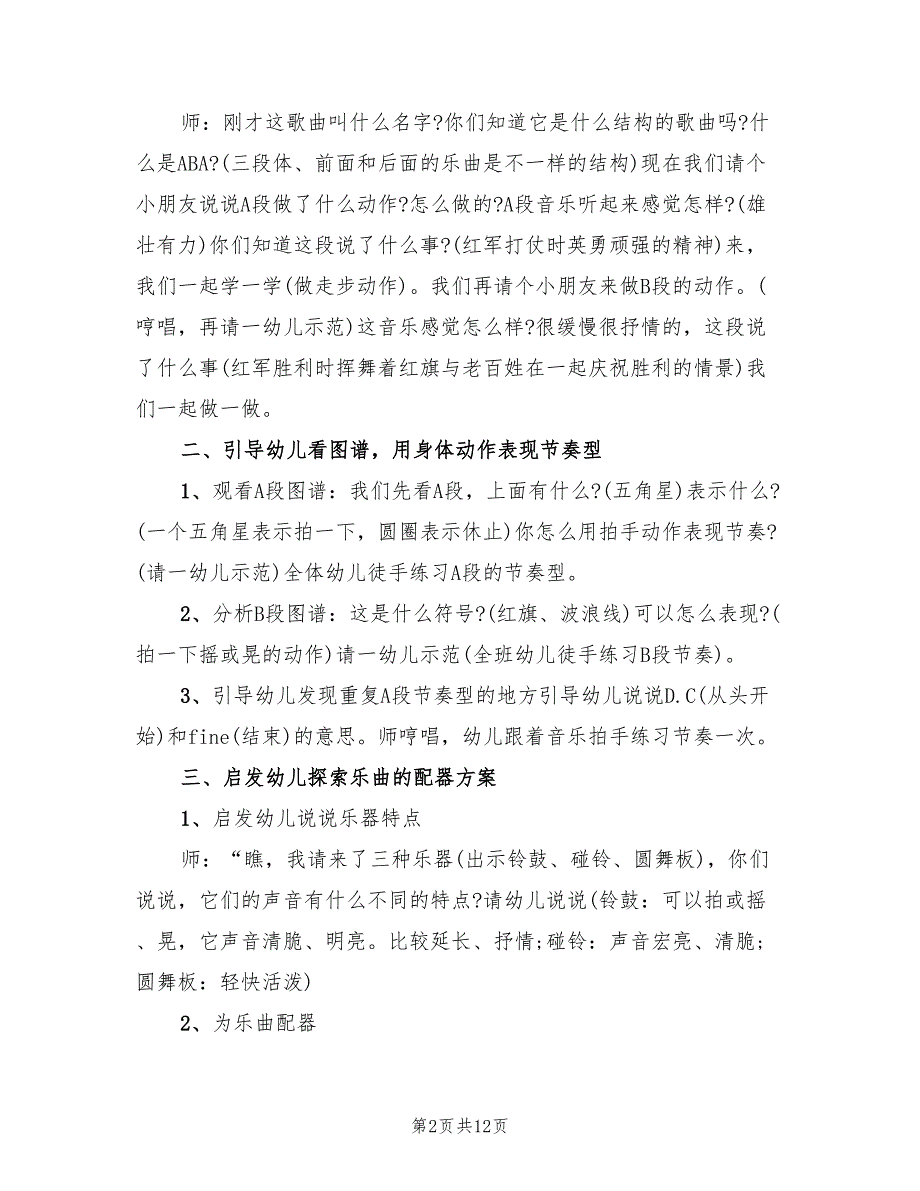 师：刚才这歌曲叫什么名字?你们知道它是什么结构的歌曲吗?什
么是ABA?(三段体、前面和后面的乐曲是不一样的结构)现在我们请个
小朋友说说A段做了什么动作?怎么做的?A段音乐听起来感觉怎样?(雄
壮有力)你们知道这段说了什么事?(红军打仗时英勇顽强的精神)来，
我们一起学一学(做走步动作)。我们再请个小朋友来做B段的动作。(
哼唱，再请一幼儿示范)这音乐感觉怎么样?很缓慢很抒情的，这段说
了什么事(红军胜利时挥舞着红旗与老百姓在一起庆祝胜利的情景)我
们一起做一做。
二、引导幼儿看图谱，用身体动作表现节奏型
1、观看A段图谱：我们先看A段，上面有什么?(五角星)表示什么?
(一个五角星表示拍一下，圆圈表示休止)你怎么用拍手动作表现节奏?
(请一幼儿示范)全体幼儿徒手练习A段的节奏型。
2、分析B段图谱：这是什么符号?(红旗、波浪线)可以怎么表现?(
拍一下摇或晃的动作)请一幼儿示范(全班幼儿徒手练习B段节奏)。
3、引导幼儿发现重复A段节奏型的地方引导幼儿说说D.C(从头开
始)和fine(结束)的意思。师哼唱，幼儿跟着音乐拍手练习节奏一次。
三、启发幼儿探索乐曲的配器方案
1、启发幼儿说说乐器特点
师：“瞧，我请来了三种乐器(出示铃鼓、碰铃、圆舞板)，你们
说说，它们的声音有什么不同的特点?请幼儿说说(铃鼓：可以拍或摇
、晃，它声音清脆、明亮。比较延长、抒情;碰铃：声音宏亮、清脆;
圆舞板：轻快活泼)
2、为乐曲配器
第2页共12页